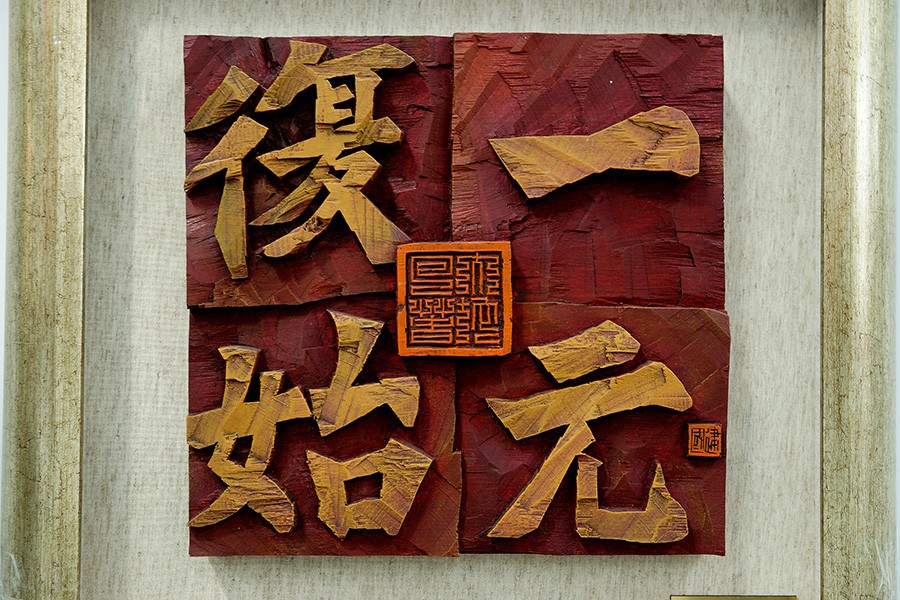 一元
復始